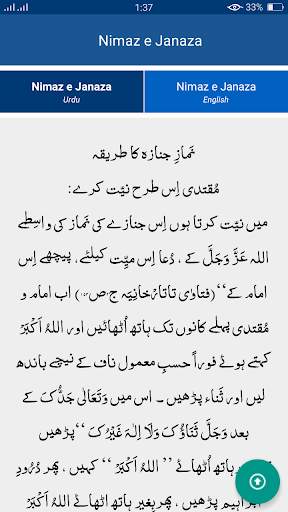 1:37
33%
Nimaz e Janaza
Nimaz e Janaza
Urdu
Nimaz e Janaza
English
نمازِ جنازہ کا طریقہ
مُقتدی اِس طرح نیّت کرے:
میں نیّت کرتا ہوں اِس جنازے کی نَماز کی واسِطے
اللہ عَزَّ وَجَلَّ کے ، دُعا اِس میِّت کیلئے، پیچھے اِس
امام کے‘‘ (فتاوٰی تاتارْخانِیَہ ج۲ص۱۵۳) اب امام و
مُقتدی پہلے کانوں تک ہاتھ اُٹھائیں اور اللہُ اَکْبَرْ
کہتے ہوئے فوراً حسبِ معمول ناف کے نیچے باندھ
لیں اور ثَناء پڑھیں ۔ اس میں وَتَعَالٰی جَدُّکَ کے
بعد وَجَلَّ ثَنَاؤُکَ وَلَا اِلٰہَ غَیْرُکَ ‘‘پڑھیں
بغیر ہاتھ اُٹھائے ’’ اللہُ اَکْبَرْ ‘‘ کہیں ، پھر دُرُودِ
ابراہیم پڑھیں ، پھر بغیر ہاتھ اُٹھائے اللہُ اَکْبَرْ